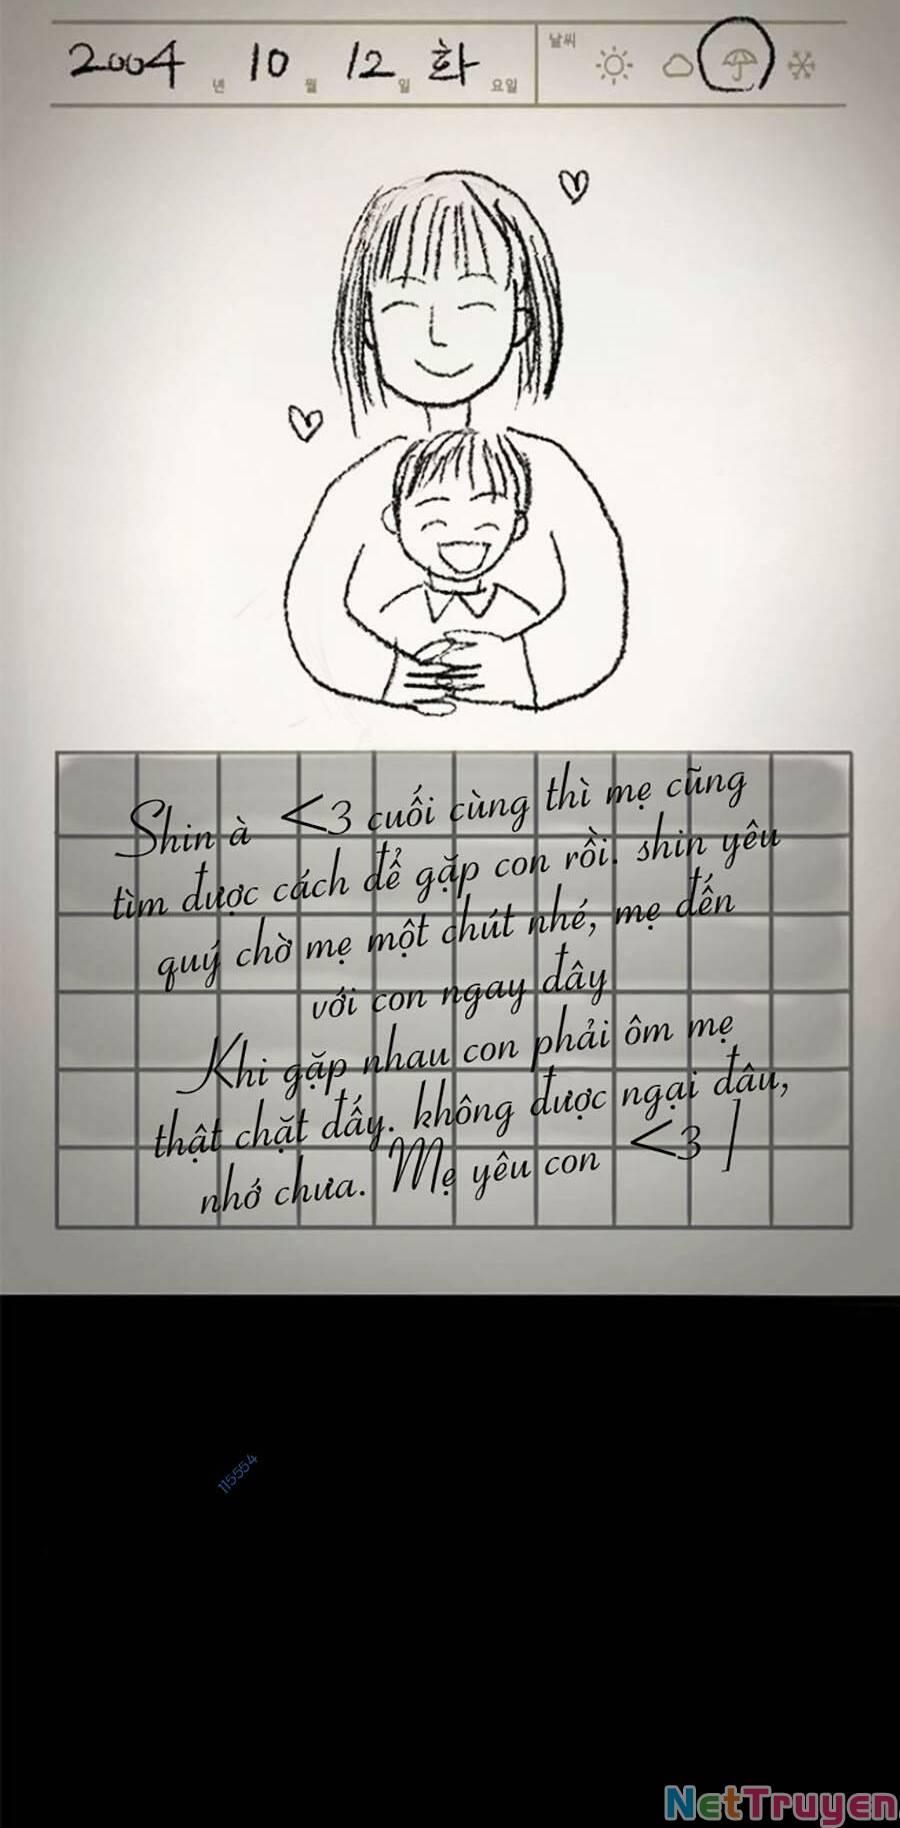 2004 년 10 월 12 일 화 요일 날씨
Shin à <3 cuối cùng thì mẹ cũng
tìm được cách để gặp con rồi. shin yêu
quý chờ mẹ một chút nhé, mẹ đến
với con ngay đây
Khi gặp nhau con phải ôm mẹ
thật chặt đấy. không được ngại đâu,
nhớ chưa. Mẹ yêu con <3 ]
115554
NetTruyen